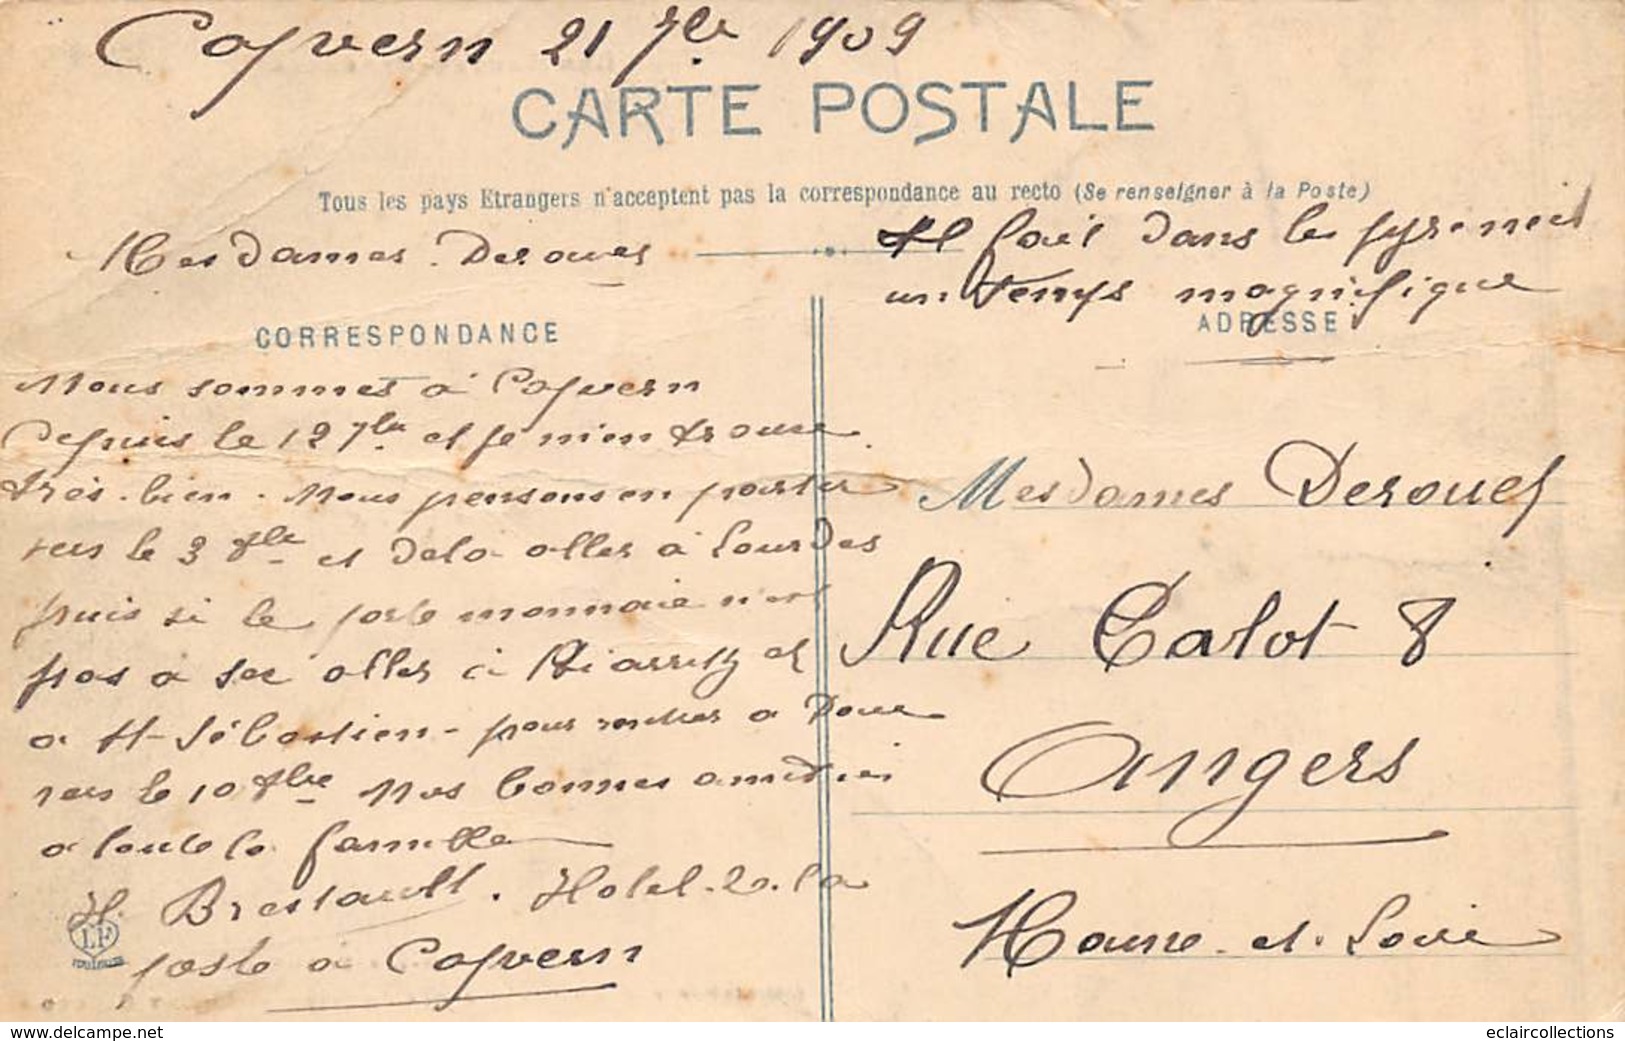 Capvern 21 7bre 1909
CARTE POSTALE
Tous les pays Etrangers n'acceptent pas la correspondance au recto (Se renseigner à la Poste)
Mesdames Derouet
Il fait dans les pyrenées
un temps magnifique
CORRESPONDANCE
ADRESSE
Nous sommes à Capvern
depuis le 12 7bre et je m'en trouve
très bien. Nous pensons en partir
vers le 3 8bre et dela aller à Lourdes
puis si le porte monnaie n'est
pas a sec aller à Biarritz et
a St Sébastien - pour rentrer a Doué
vers le 10 8bre Nos bonnes amitiés
a toute la famille
H. Brestault. Hotel de la
poste à Capvern
LF
TOULOUSE
Mesdames Derouet
Rue Talot 8
Angers
Maine et Loire
www.delcampe.net
eclaircollections